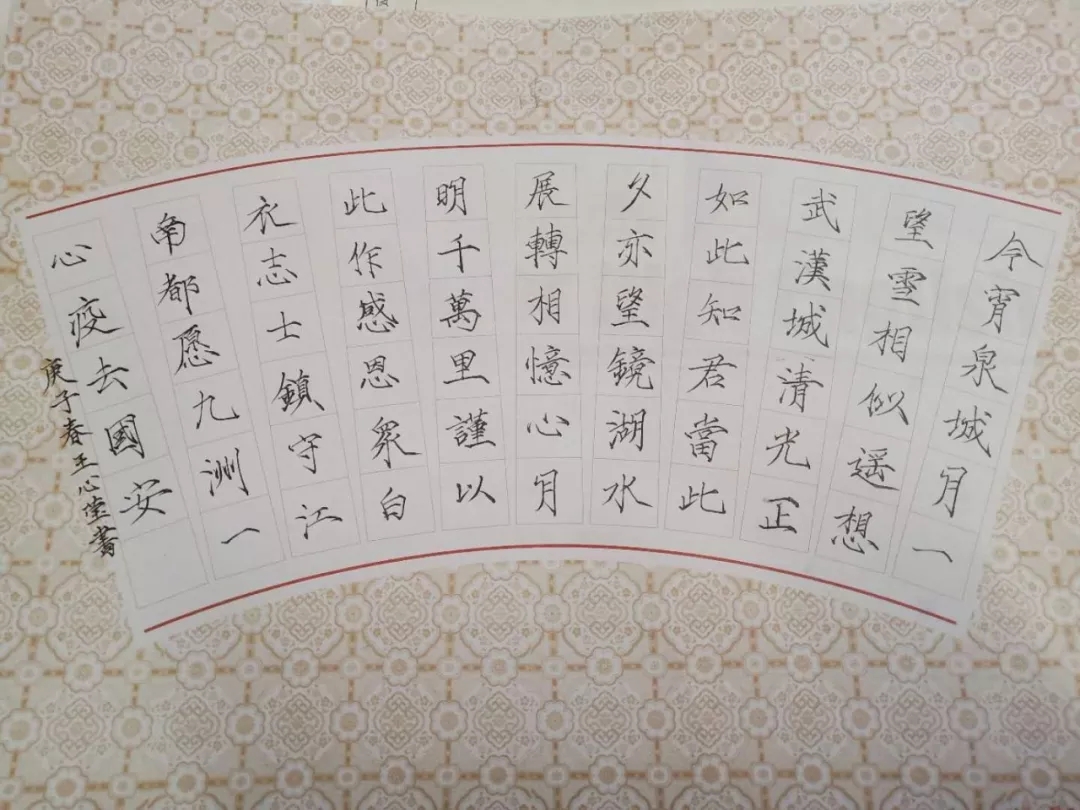 今宵泉城月一
望雪相似遥想
武漢城清光正
如此知君當此
夕亦望鏡湖水
展轉相憶心月
明千萬里謹以
此作感恩衆白
衣志士鎮守江
南都愿九洲一
心疫去國安
庚子春王心堂書